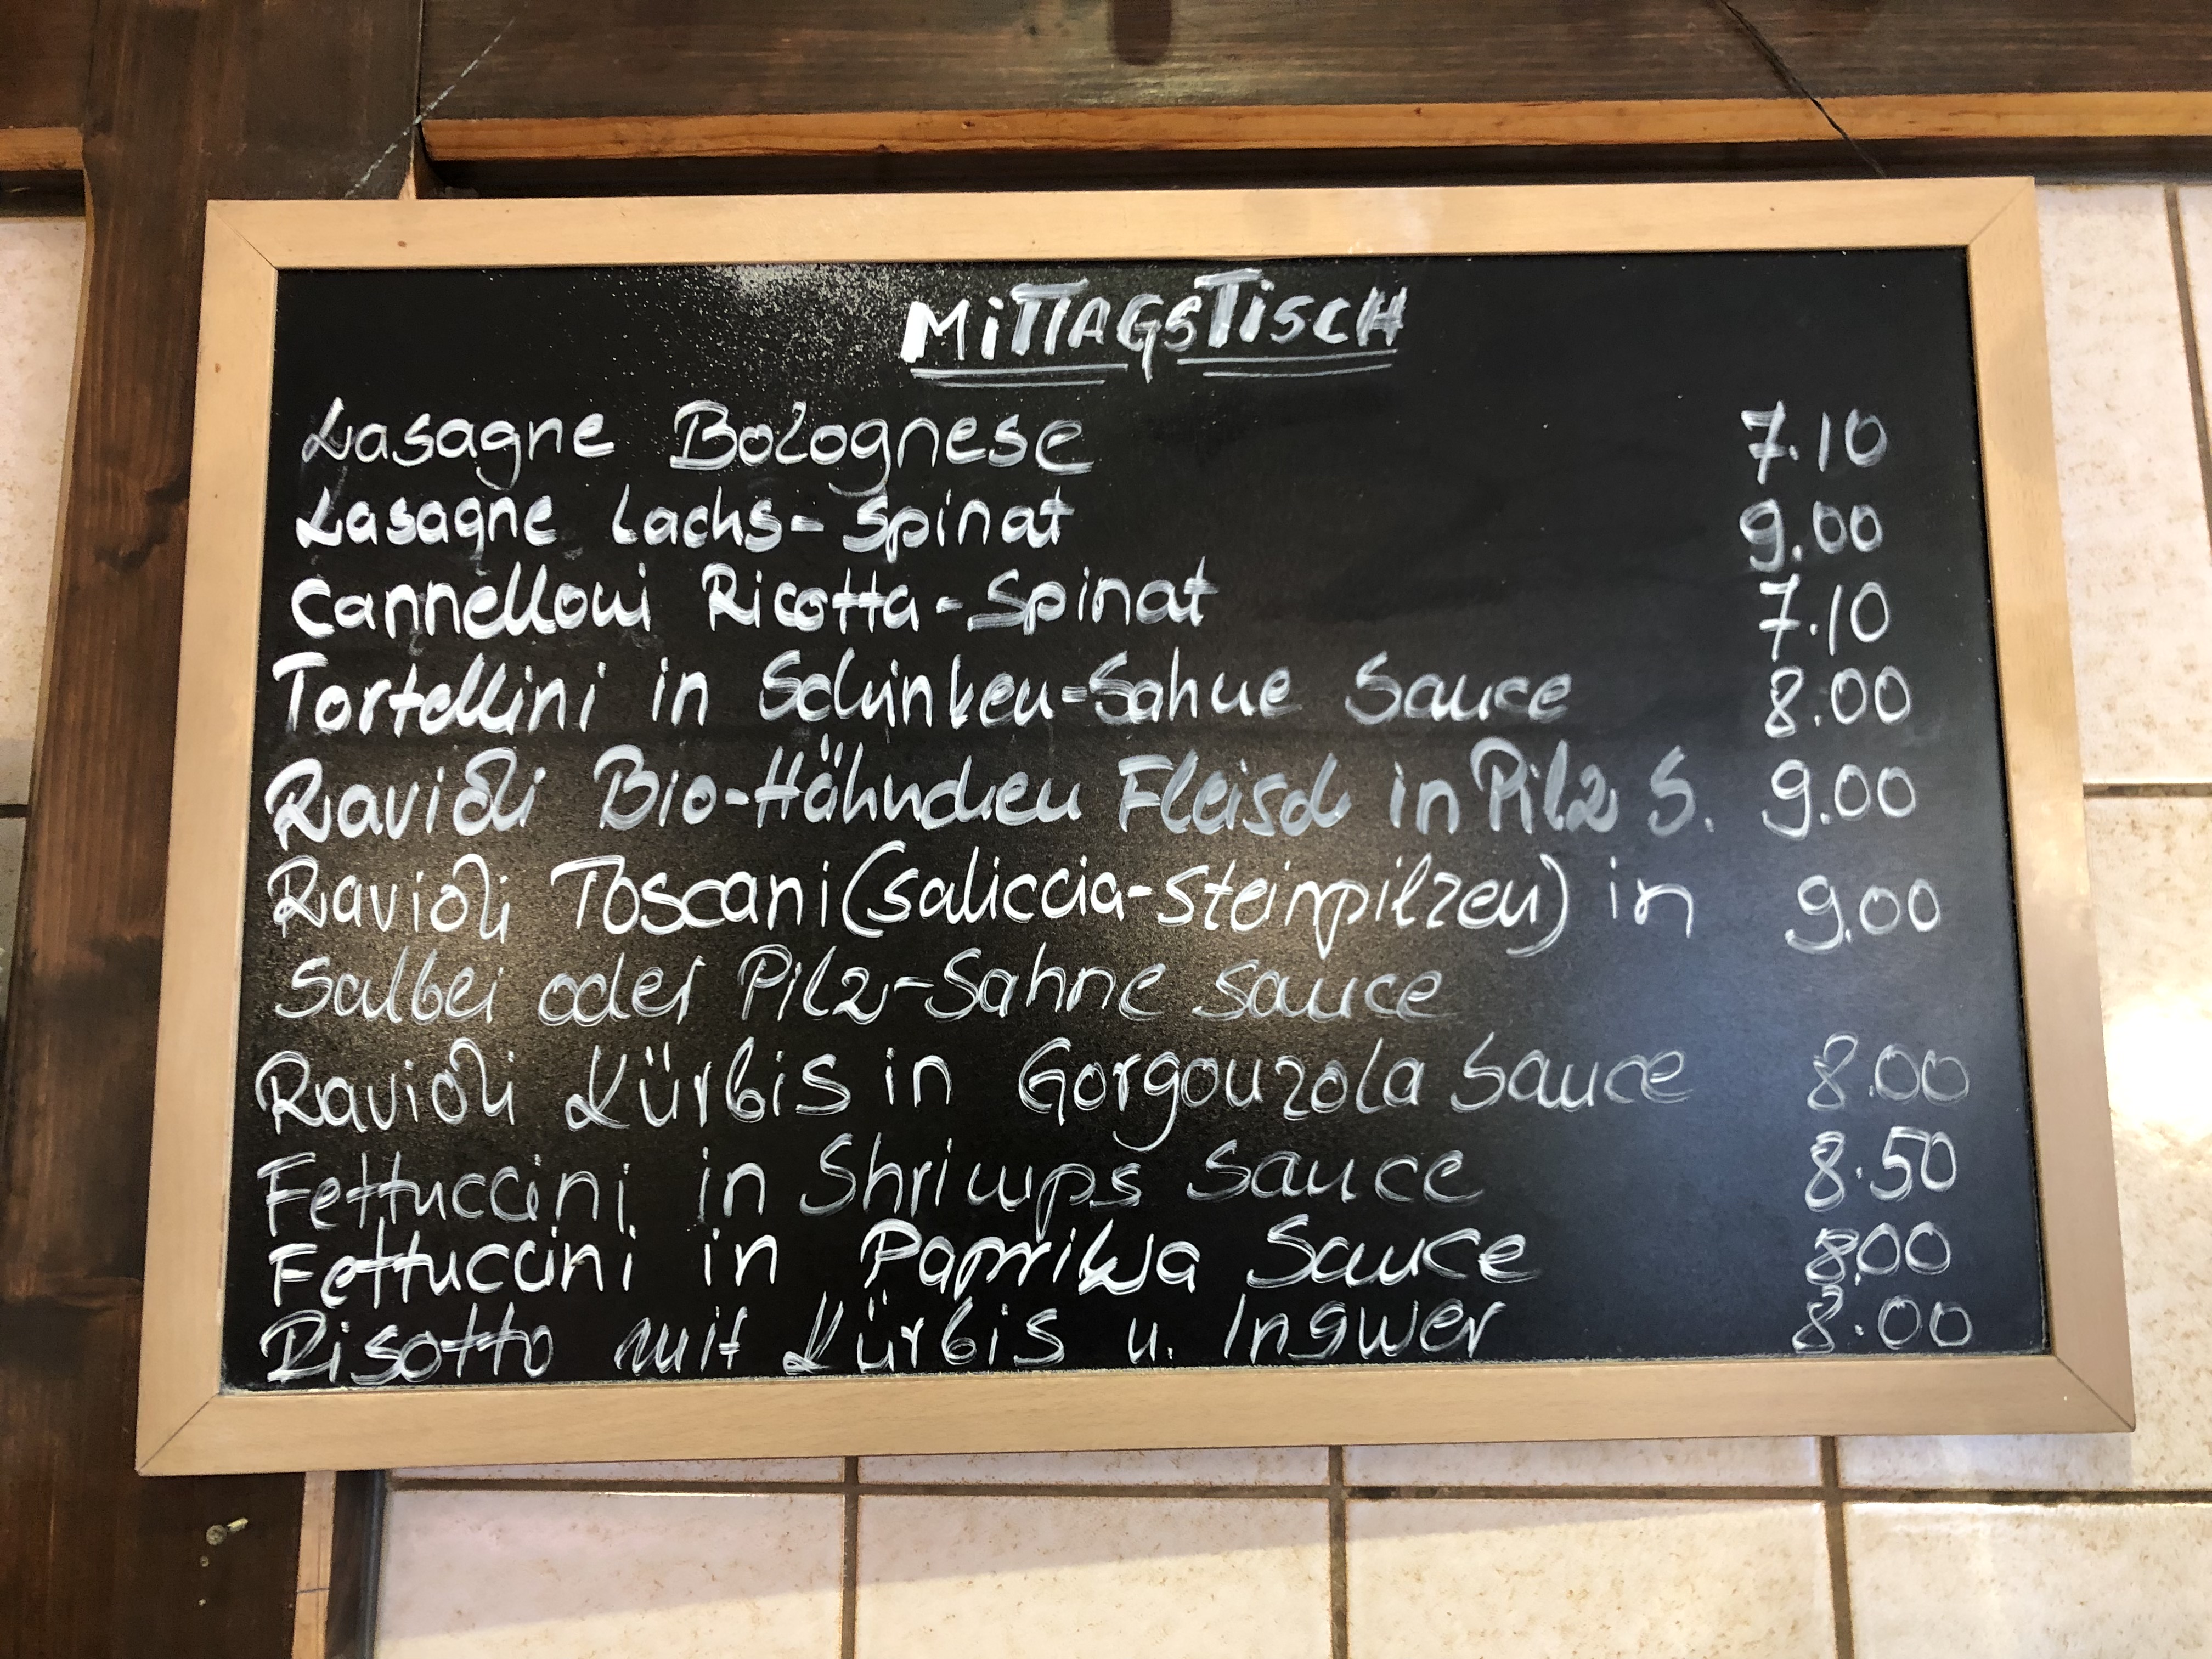 MiTTAGSTiSCH
Lasagne Bolognese 7.10
Lasagne Lachs-Spinat 9.00
Cannelloni Ricotta-Spinat 7.10
Tortellini in Schinken-Sahne Sauce 8.00
Ravioli Bio-Hähnchen Fleisch in Pilz S. 9.00
Ravioli Toscani (Saliccia-Steinpilzen) in 9.00
Salbei oder Pilz-Sahne Sauce
Ravioli Kürbis in Gorgonzola Sauce 8.00
Fettuccini in Shrimps Sauce 8.50
Fettuccini in Paprika Sauce 8,00
Risotto mit Kürbis u. Ingwer 8.00